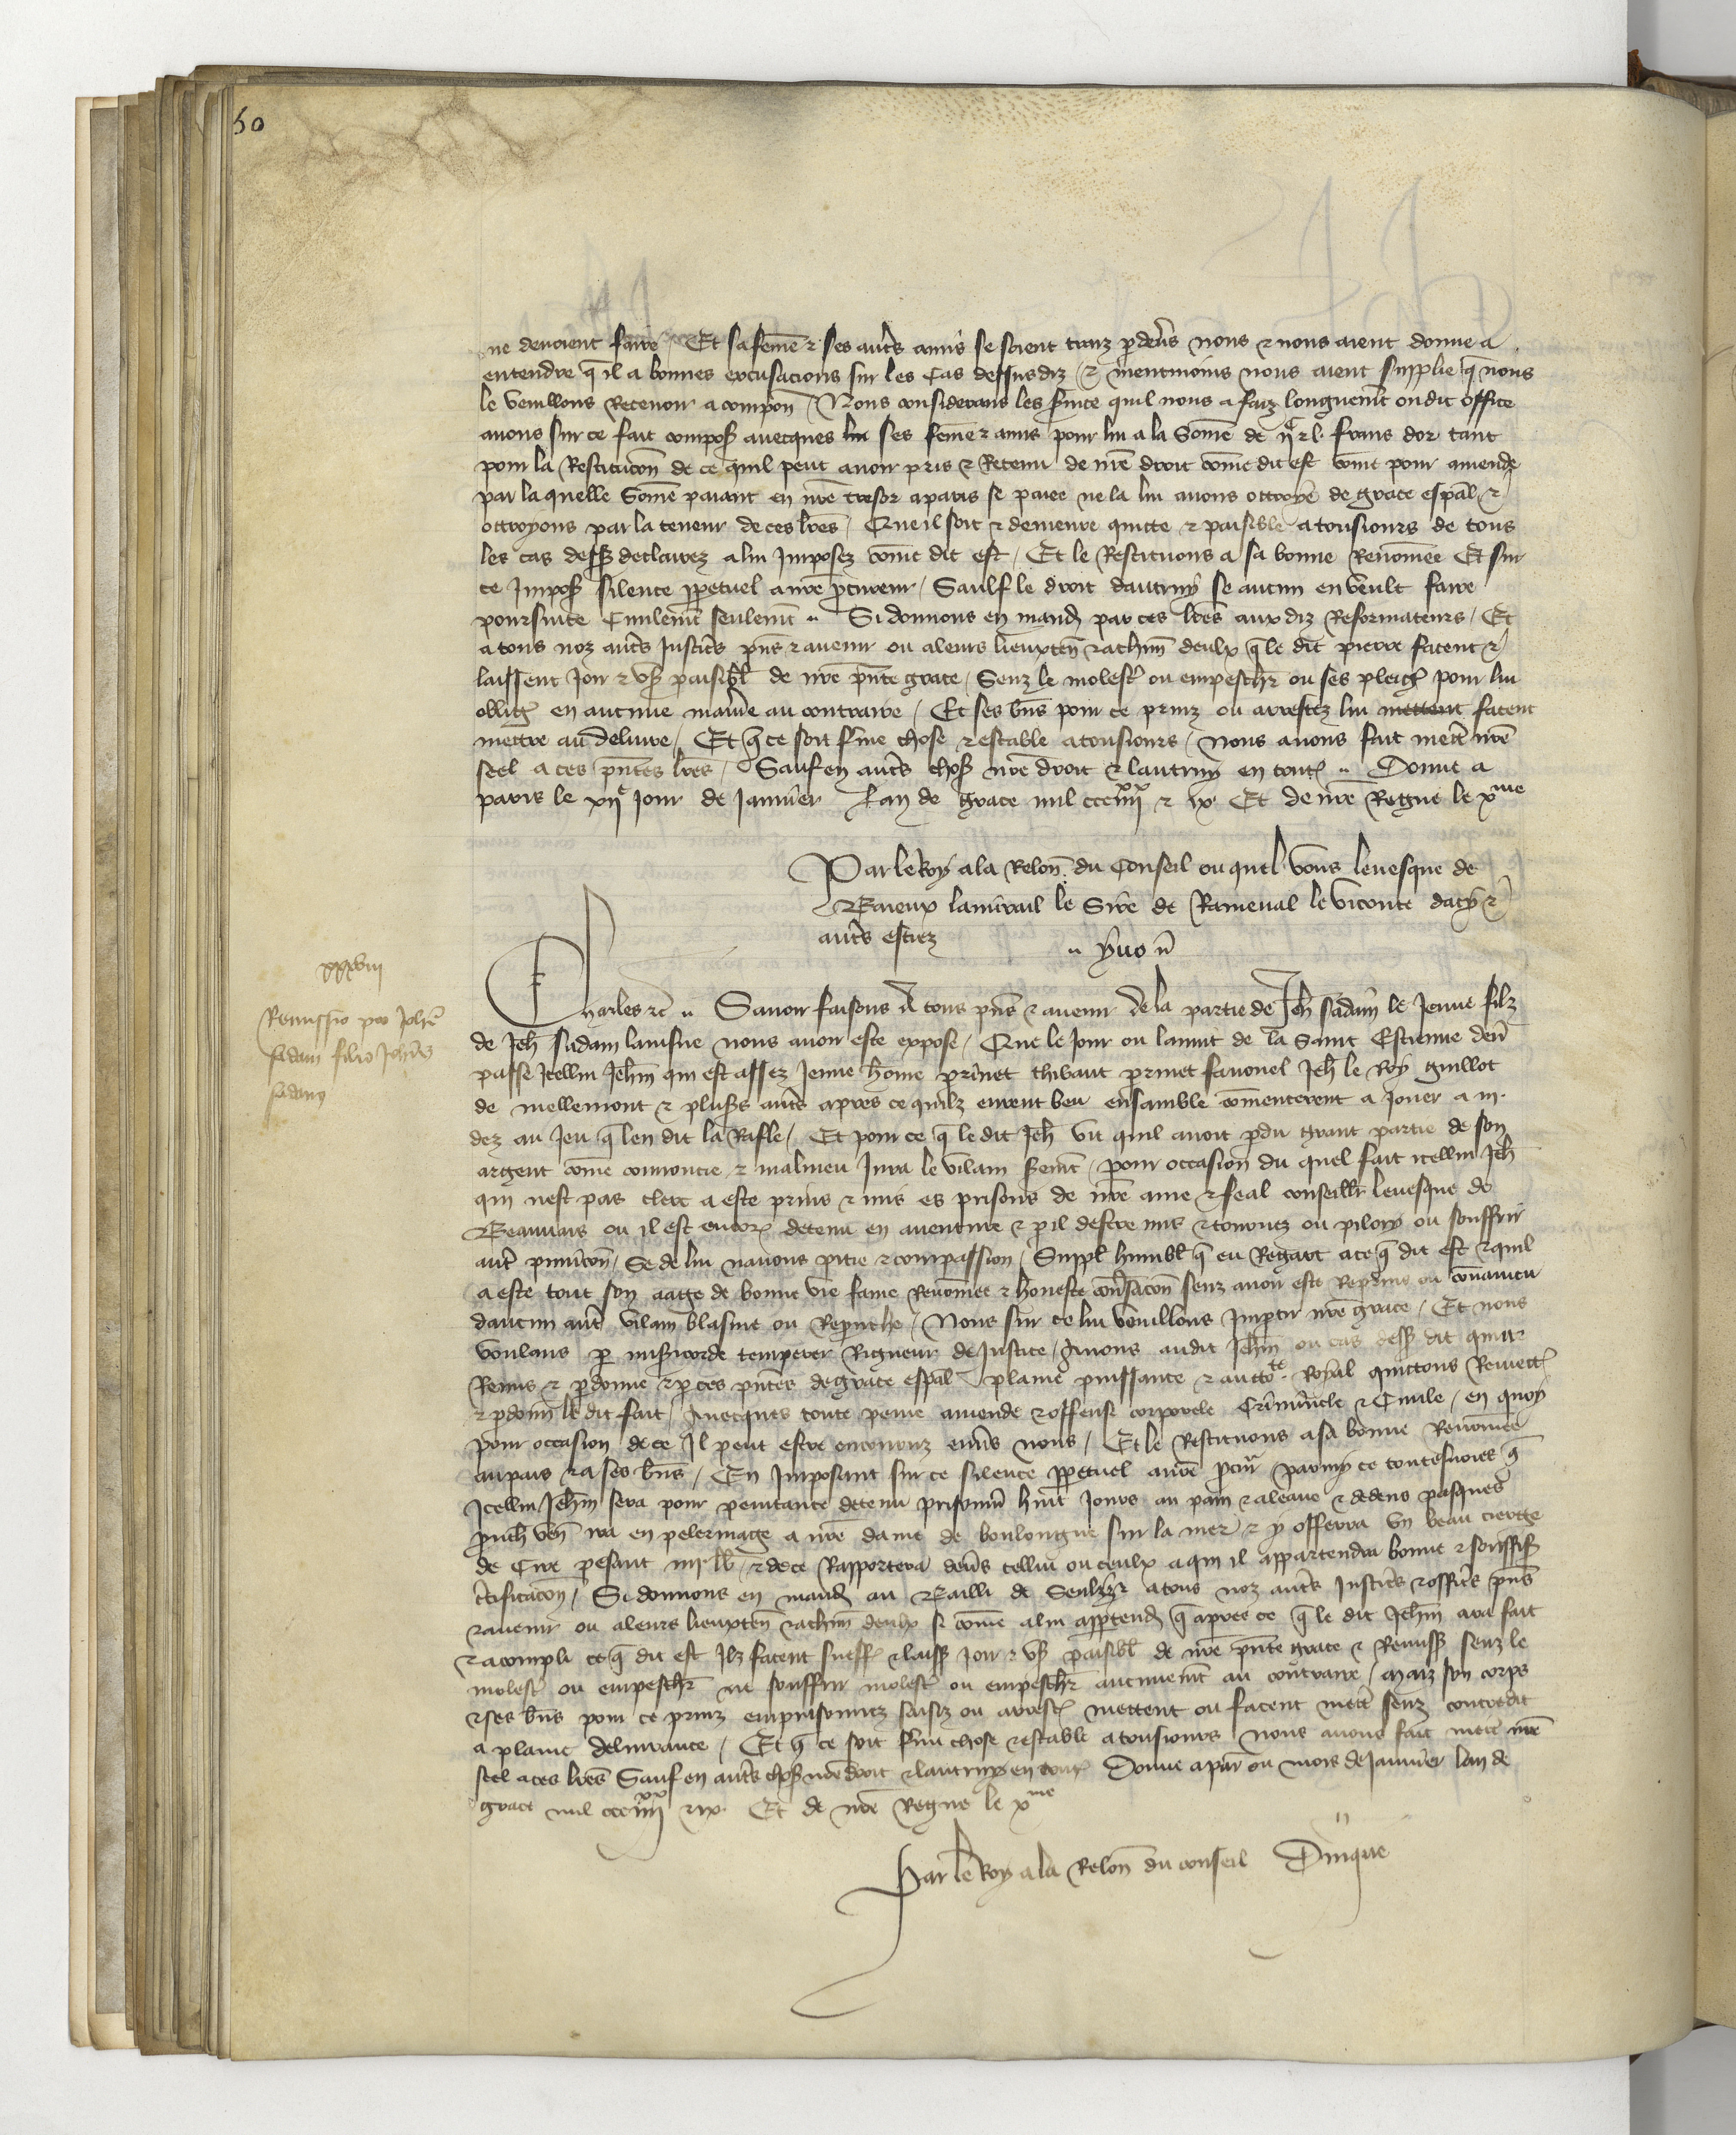 60
ne devoient faire Et sa feme & ses autrs amis se soient traiz p devers nous & nous aient donne a
entendre q il a bonnes excusacions sur les cas dessusdiz & nientmoins nous aient supplie q nous
le veuillons recevoir a compon Nous considerans les svice quil nous a faiz longuemt oudit office
avons sur ce fait compos avecques ses feme & amis pour lui a la some de ijc l frans dor tant
pour la restitucon de ce quil peut avoir pris & retenu de nre droit come dit est come pour amende
par la quelle some paiant en nre tresor a paris se paiee ne la lui avons ottroye de grace espal &
ottroyons par la teneur de ces lres Que il soit & demeure quitte & paisible a tousiours de tous
les cas dess declairez a lui imposez come dit est Et le restituons a sa bonne renomee Et sur
ce impos silence ppetuel a nre pcureur Saulf le droit dautruy se aucun en veult faire
poursuite civilemt seulemt Si donnons en mand par ces lres aux diz reformateurs Et
a tous noz autrs justicrs pns & avenir ou a leurs lieuxten & a chun deulx q le dit pierre facent &
laissent joir & us paisibl de nre pnte grace Senz le molestr ou empeschr ou ses pleig pour lui
oblig en aucune maniere au contraire Et ses bns pour ce prinz ou arrestez lui mettent facent
mettre au delivre Et q ce soit ferme chose & estable a tousiours nous avons fait mettr nre
seel a ces pntes lres Sauf en autrs chos nre droit & lautruy en tout Donne a
paris le xije jour de janvier lan de grace mil ccc iiijxx & ix Et de nre regne le xme
Par le Roy a la relon du conseil ou quel vous levesque de
Baieux lamirail le Sire de Rameval le viconte dacy &
autrs estiez yvo n
xxxviij
Remissio pro Johe
sadam filio Johis
sadam
Charles &c Savoir faisons A tous pns & avenir De la partie de Jeh sadam le jeune filz
de Jeh sadam lainsne nous avoir este expose Que le jour ou lannit de la saint Estienne derr
passe icellui Jehn qui est assez jeune home perrinet thibaut perrinet favonel Jeh le Roy guillot
de mellemont & plus autrs apres ce quilz eurent beu ensamble comencerent a jouer a iij
dez au jeu q len dit la rafle Et pour ce q le dit Jeh vit quil avoit pdu grant partie de son
argent come courroucie & malmeu jura le vilain sermt pour occasion du quel fait icellui Jeh
qui nest pas clerc a este prins & mis es prisons de nre ame & feal conseillr levesque de
Beauvais ou il est encor detenu en aventure & pil destre mis & tournez ou pilory ou souffrir
autr punicon Se de lui navons pitie & compassion Suppl humbl q eu regart a ce q dit est & quil
a este tout son aage de bonne vie fame renomee & honeste conversacon senz avoir este reprins ou convaincu
daucun autr vilain blasme ou reprouche Nous sur ce lui veuillons impartir nre grace Et nous
voulans p misericorde temperer rigueur de justice Avons audit Jehn ou cas dess dit quitt
remis & pdonne & p ces pntes de grace espal plaine puissance & auctote royal quictons remectt
& pdonn le dit fait Avecques toute peine amende & offense corporele criminele & civile en quoy
pour occasion de ce il peut estre encouruz envers nous Et le restituons a sa bonne renomee
au pais & a ses bns En imposant sur ce silence ppetuel a nre pcur parmy ce toutesvoies q
icellui Jehn sera pour penitance detenu prisonnr huit jours au pain & a leaue & dedens pasques
prouch ven ira en pelermage a nre dame de boulongne sur la mer & y offerra un beau cierge
de cire pesant iiij lb & de ce rapportera devers cellui ou ceulx a qui il appartendra bonne & souffis
ctificacon Si donnons en mand au Bailli de Senliz & a tous noz autrs justicrs & officrs pns
& avenir ou a leurs lieuxten & a chun deulx si come a lui appartend q apres ce q le dit Jehn ara fait
& acompli ce q dit est ilz facent sueff & laiss joir & us paisibl de nre pnte grace & remiss senz le
molestr ou empeschr ne souffrir molestr ou empeschr aucunemt au contraire Maiz son corps
& ses bns pour ce prinz emprisonnez saisiz ou arrest mettent ou facent mettr senz contredit
a plaine delivrance Et q ce soit ferme chose & estable a tousiours nous avons fait mettr nre
seel a ces lres Sauf en autrs chos nre droit & lautruy en tout Donne a par ou mois de janvier lan de
grace mil ccc iiijxx & ix Et de nre regne le xme
Par le Roy a la relon du conseil Dinque